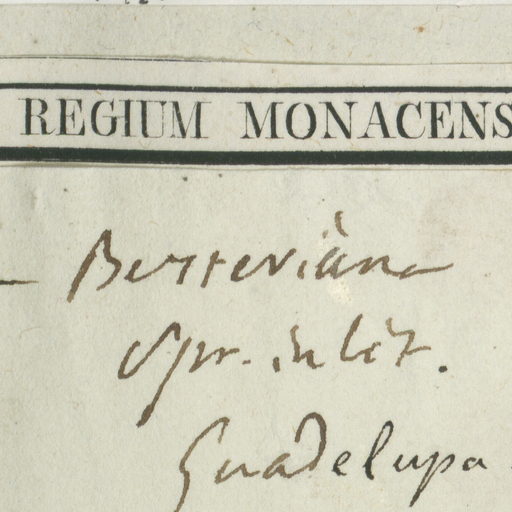 REGIUM MONACENS
Berteriana
Spr. in lit.
Guadelupa